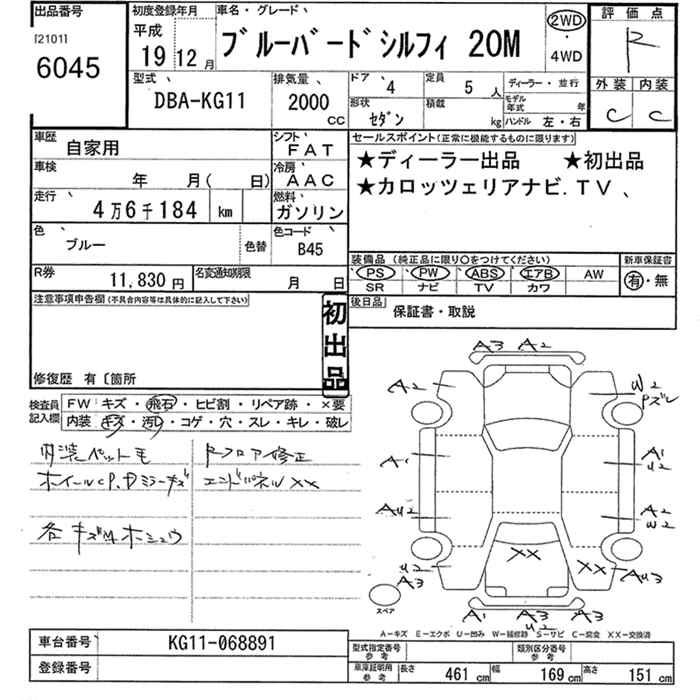 出品番号
[2101]
6045
初度登録年月
平成
19年12月
車名・グレード
ブルーバードシルフィ 20M
2WD
・
4WD
評価点
R
外装 内装
C C
型式
DBA-KG11
排気量
2000
CC
ドア
4
定員
5人
形状
セダン
積載
kg
ディーラー・並行
モデル年式 年
ハンドル 左・右
車歴
自家用
シフト
FAT
車検
年 月( 日)
冷房
AAC
走行
4万6千184 km
燃料
ガソリン
色
ブルー
色替
色コード
B45
R券
11,830円
名変通知期限
月 日
セールスポイント(正常に機能するものに限ります)
★ディーラー出品 ★初出品
★カロッツェリアナビ.TV、
装備品 (純正品に限り○をつけてください)
PS PW ABS エアB AW
SR ナビ TV カワ
新車保証書
有・無
後日品
保証書・取説
注意事項申告欄(不具合内容等は具体的に記入して下さい)
初出品
修復歴 有〔箇所
検査員記入欄
FW キズ・飛石・ヒビ割・リペア跡・×要
内装 キズ・汚れ・コゲ・穴・スレ・キレ・破レ
内装ペット毛
ホイールCP.Dミラーキズ
各キズM ホシュウ
Rフロア修正
エンドパネルXX
A3 A2
A2
W2
Pズレ
A1
A1
U2
AU2
A2
W2
U2
A3
XX
XX
AU3
スペア
A1 A3 A3
U2
A-キズ E-エクボ U-凹み W-補修跡 S-サビ C-腐食 XX-交換済
車台番号
KG11-068891
登録番号
型式指定番号
参考
類別区分番号
参考
車庫証明用
参考
長さ 461 cm 幅 169 cm 高さ 151 cm